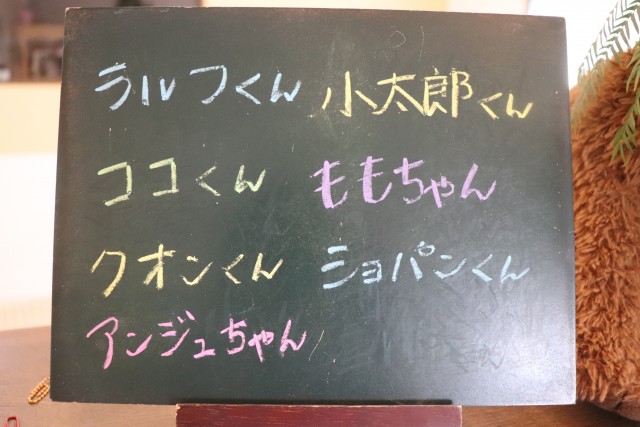 ラルフくん 小太郎くん
ココくん ももちゃん
クオンくん ショパンくん
アンジュちゃん